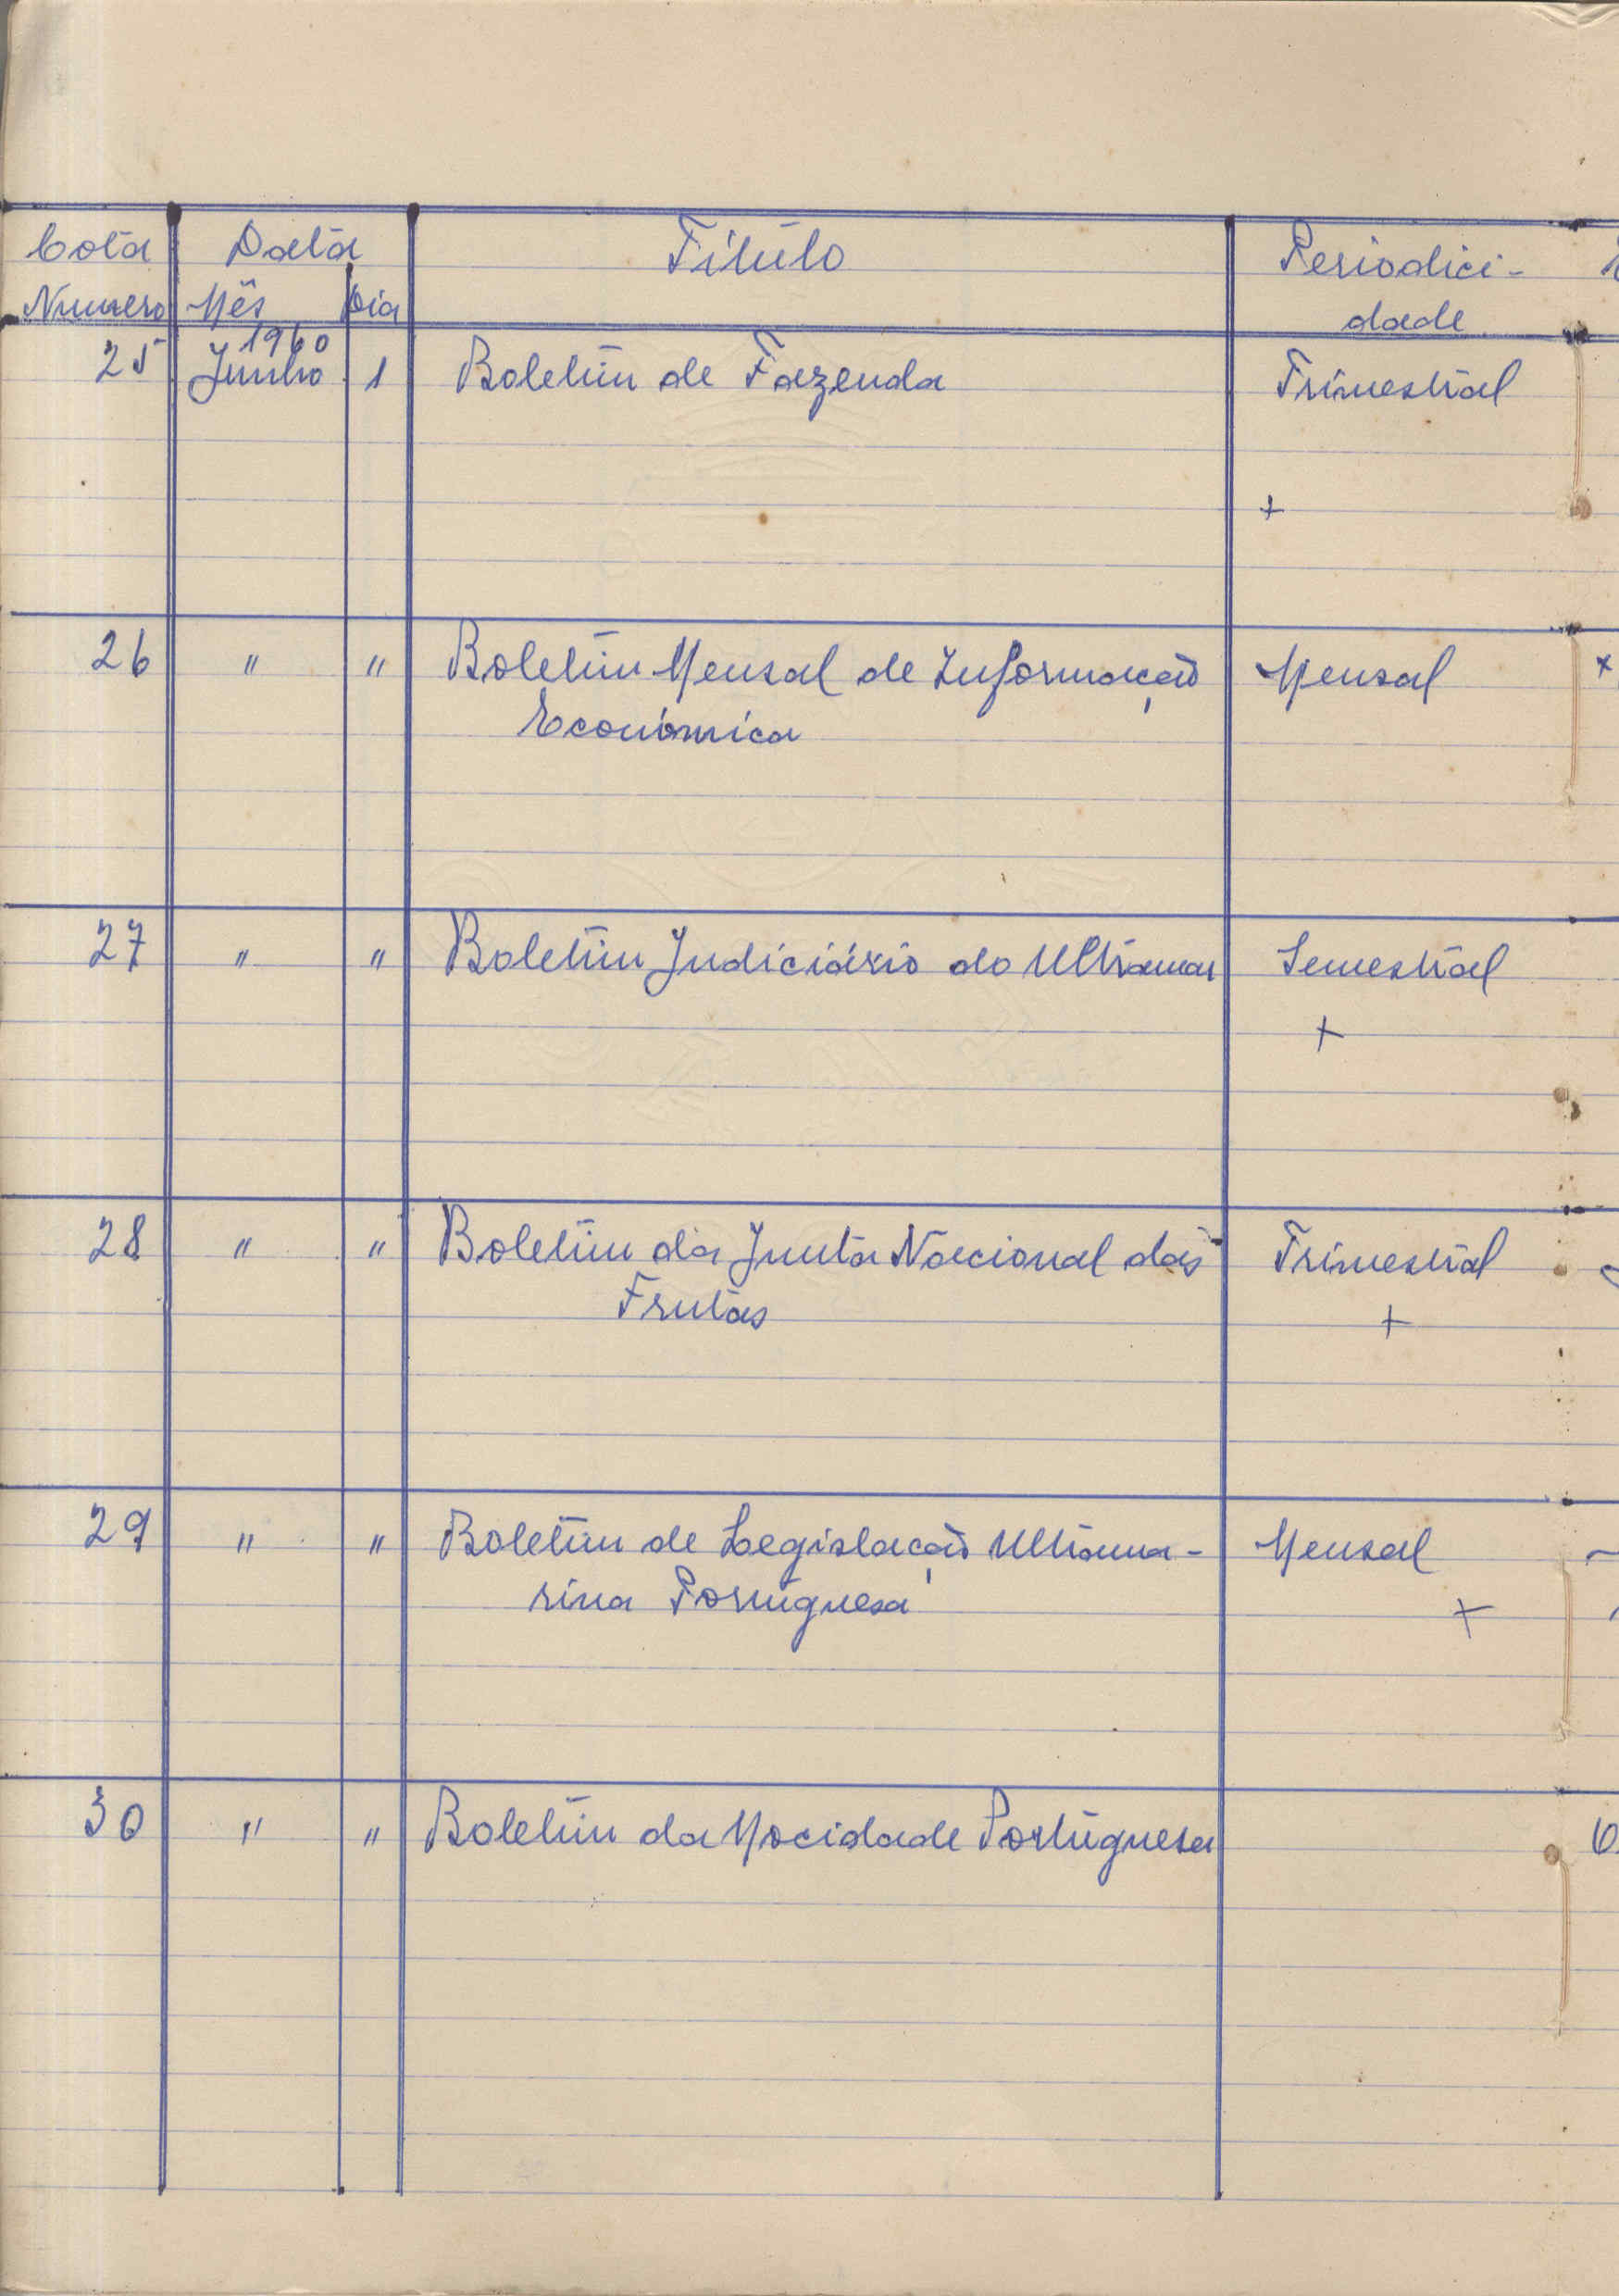 Cota Data Título Periodici-
Numero Mês Dia dade
1960
25 Junho 1 Boletim de Fazenda Trimestral
+
26 " " Boletim Mensal de Informação Mensal x
Económica
27 " " Boletim Judiciário do Ultramar Semestral
+
28 " " Boletim da Junta Nacional das Trimestral
Frutas +
29 " " Boletim de Legislação Ultrama- Mensal
rina Portuguesa +
30 " " Boletim da Mocidade Portuguesa